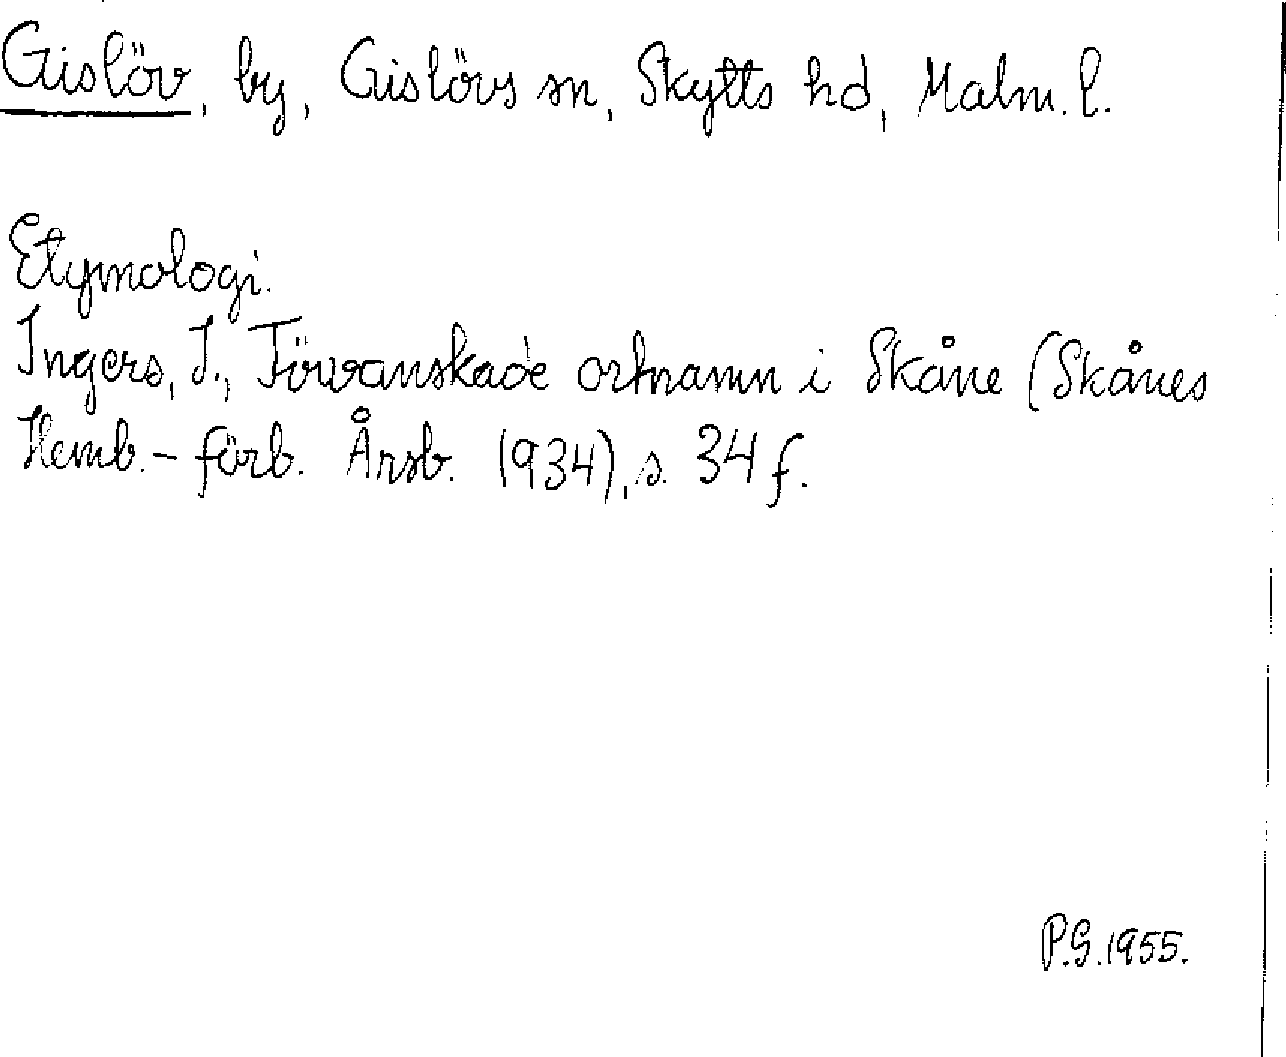 Gislöv, by, Gislövs sn, Skytts hd, Malm. l.
Etymologi.
Ingers, I., Förvanskade ortnamn i Skåne (Skånes
Hemb.-förb. Årsb. 1934), s. 34 f.
P.G. 1955.